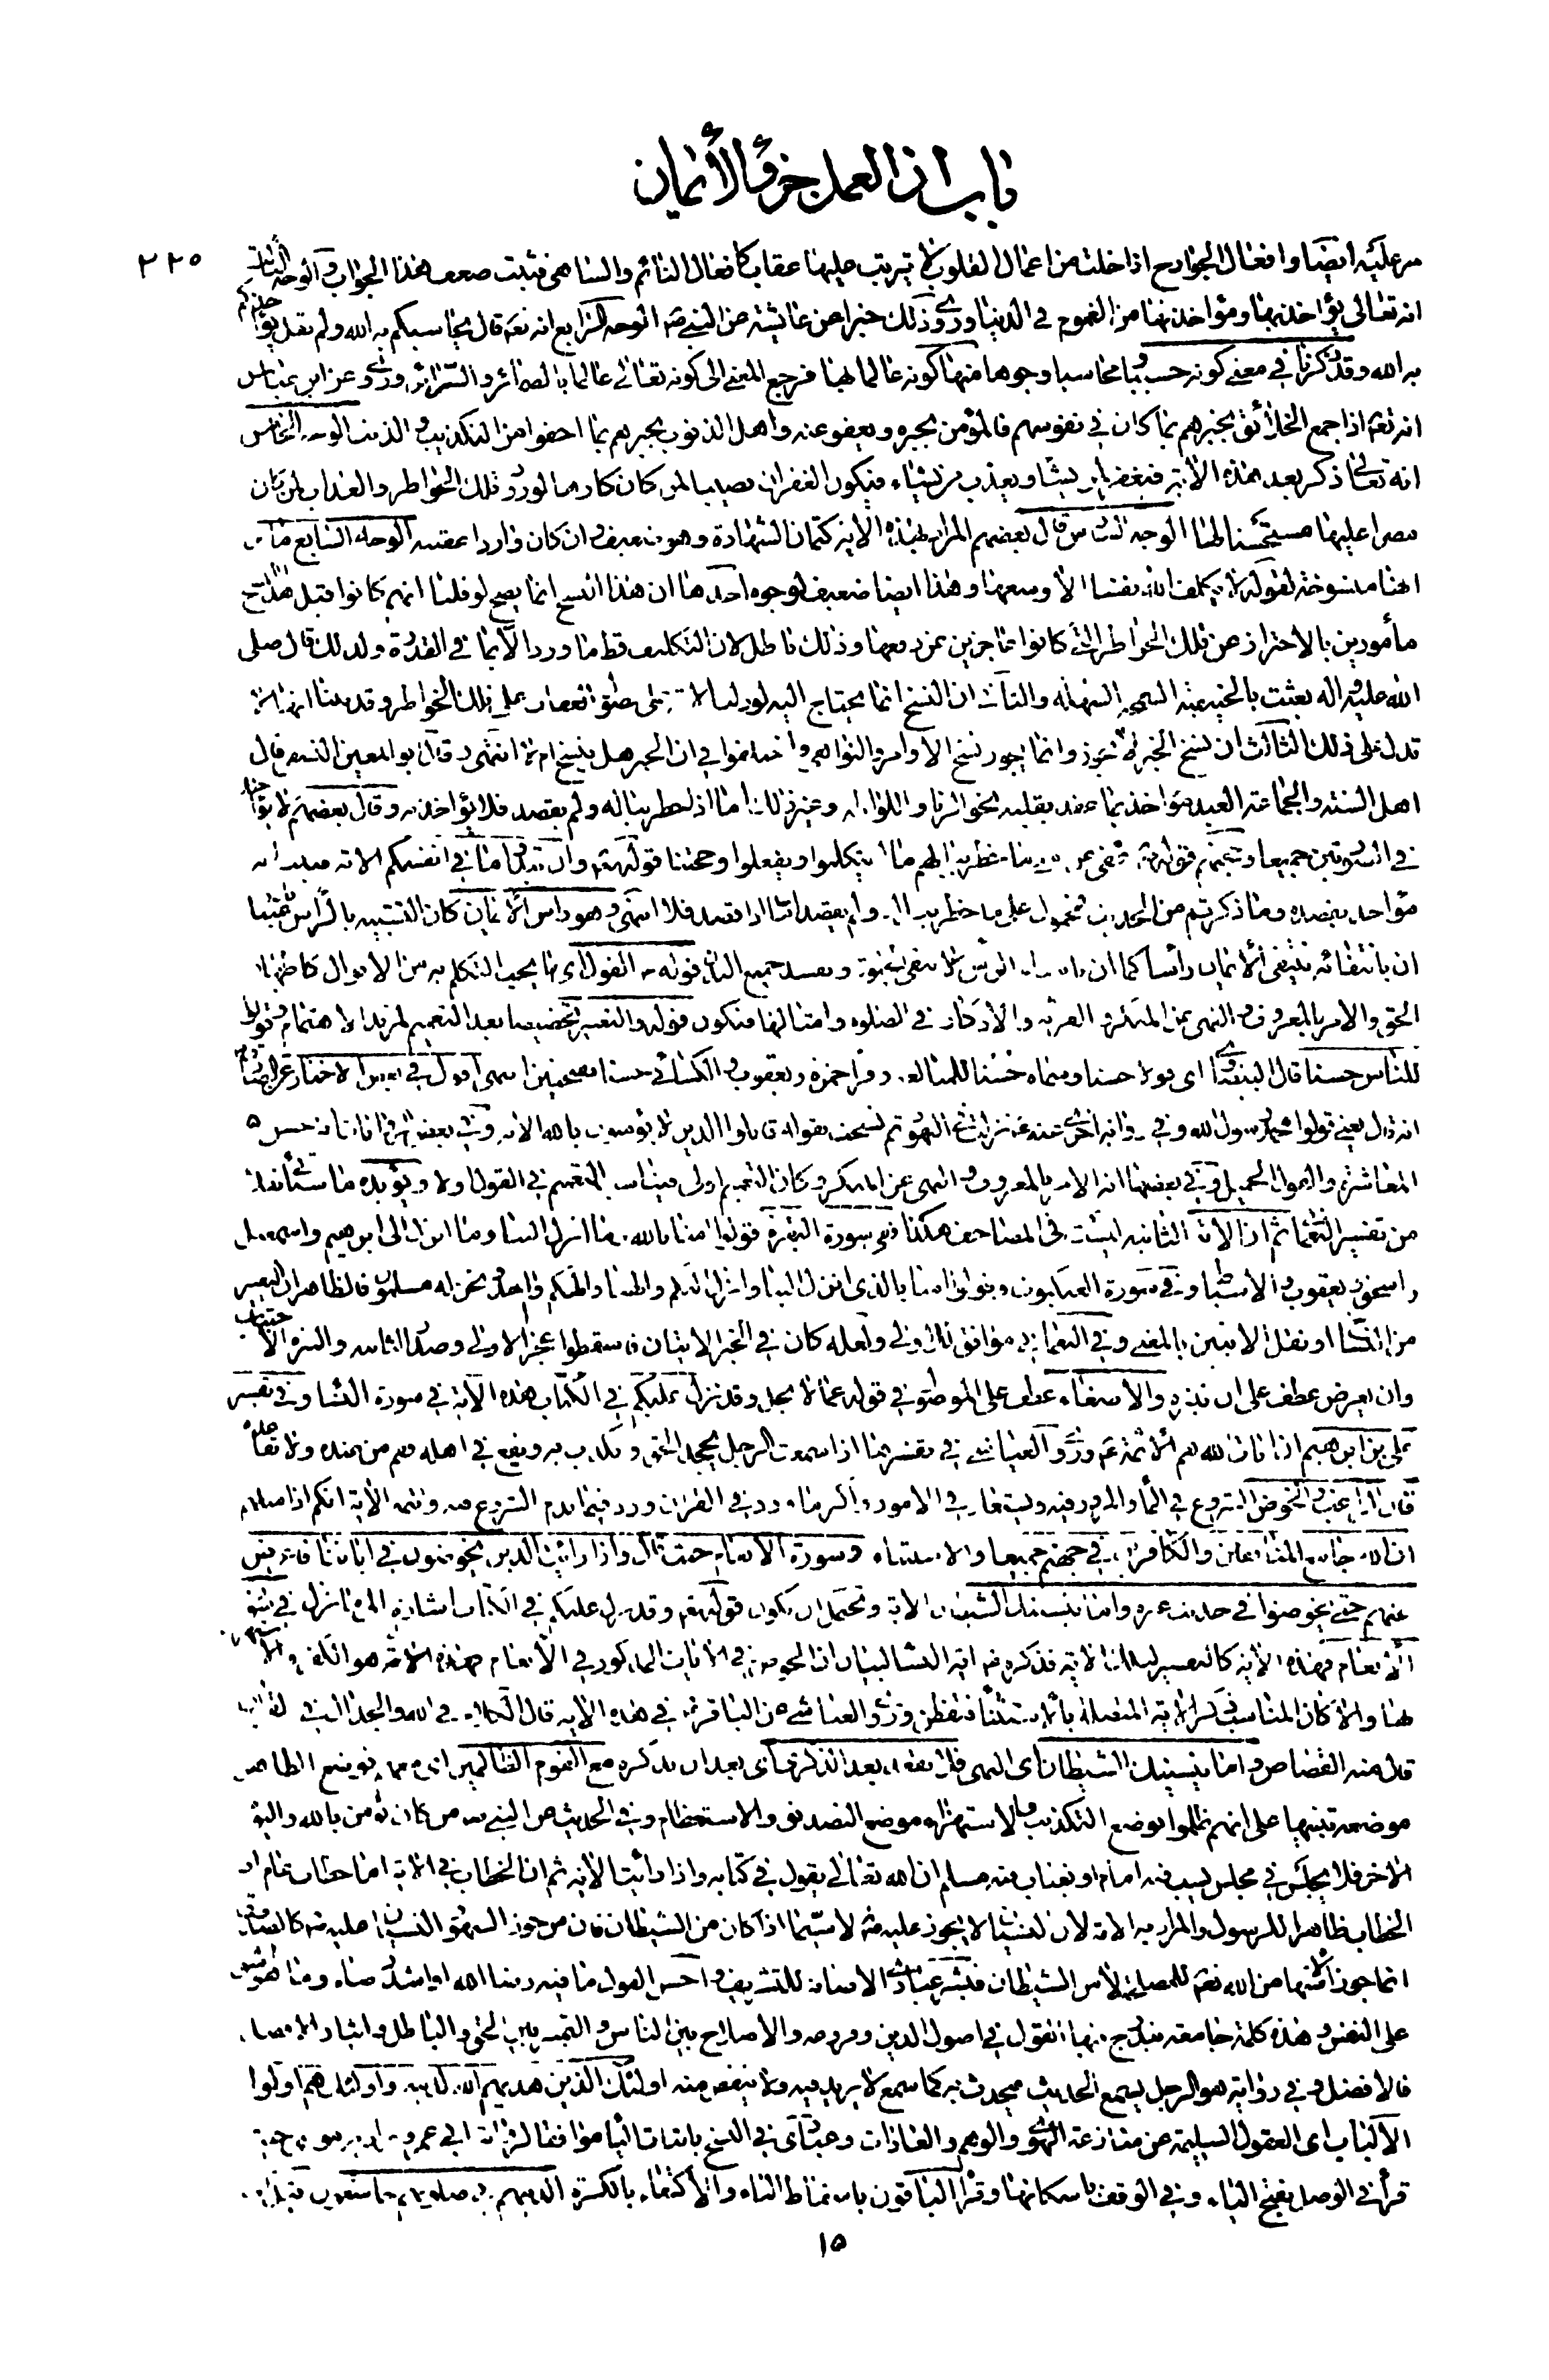 باب ان العمل جزء الأيمان
٢٢٥
عليه ايضا وافعال الجوارح اذا خلت من اعمال القلوب لا يترتب عليها عقاب كافعال النائم والساهى فثبت ضعف هذا الجواب و الوجه الثالث
انه تعالى يؤاخذ بها ومؤاخذتها من الغموم في الدنيا وروى ذلك خبرا عن عائشة عن النبي ص الوجه الرابع انه تعه قال يحاسبكم به الله ولم يقل يؤاخذكم
به الله وقد ذكرنا في معنى كونه حسيبا ومحاسبا وجوها منها كونه عالما بها فرجع المعنى الى كونه تعالى عالما بالضمائر والسرائر وروى عن ابن عباس
انه تعه اذا جمع الخلائق يخبرهم بما كان في نفوسهم فالمؤمن يخبره ويعفو عنه واهل الذنوب يخبرهم بما اخفوا من التكذيب و الذنب الوجه الخامس
انه تعالى ذكر بعد هذه الاية فيغفر لمن يشاء ويعذب من يشاء فيكون الغفران نصيبا لمن كان كارها لورود تلك الخواطر والعذاب لمن كان
مصرا عليها مستحسنا لها الوجه السادس قال بعضهم المراد بهذه الاية كتمان الشهادة وهو ضعيف وان كان واردا عقيبه الوجه السابع ما
انها منسوخة لقوله لا يكلف الله نفسا الا وسعها وهذا ايضا ضعيف لوجوه احدها ان هذا النسخ انما يصح لو قلنا انهم كانوا قبل هذا النسخ
مأمورين بالاحتراز عن تلك الخواطر التي كانوا عاجزين عن دفعها وذلك باطل لان التكليف قط ما ورد الا بما في القدرة ولذلك قال صلى
الله عليه واله بعثت بالحنيفية السمحة السهلة والثاني ان النسخ انما يحتاج اليه لو دلت الاية على حصول العقاب على تلك الخواطر وقد بينا انها لا
تدل على ذلك الثالث ان نسخ الخبر لا يجوز وانما يجوز نسخ الاوامر والنواهى و اختلفوا في ان الخبر هل ينسخ ام لا انتهى وقال ابو المعين النسفى قال
اهل السنة والجماعة العبد مؤاخذ بما عقد بقلبه نحو الزنا واللواطه وغير ذلك اما اذا خطر بباله ولم يقصد فلا يؤاخذ به وقال بعضهم لا يؤاخذ
في الصورتين جميعا وحجتهم قوله ص عفى عن امتى ما خطر ببالهم ما لم يتكلموا ويفعلوا وحجتنا قوله تعه وان تبدوا ما في انفسكم الاية
مؤاخذ بقصده وما ذكرتم من الحديث فمحمول على ما خطر بباله ولم يقصد اما اذا قصد فلا انتهى وهو راس الايمان كان التشبيه بالراس باعتبار
ان بانتفائه ينتفى الايمان راسا كما ان بانتفاء الراس لا تبقى الحيوة ويفسد جميع البدن قوله القول اى ما يجب التكلم به من الاقوال كاظهار
الحق والامر بالمعروف والنهى عن المنكر والقرائة والاذكار في الصلوة وامثالها فيكون قوله والتعبير تخصيصا بعد التعميم لمزيد الاهتمام وقولوا
للناس حسنا قال البيضاوى اى قولا حسنا وسماه حسنا للمبالغة وقرا حمزة ويعقوب والكسائى حسنا بفتحتين انتهى
انه قال يعنى قولوا محمد رسول الله وفي رواية اخرى عنه ع نزلت في اليهود ثم نسخت بقوله قاتلوا الذين لا يؤمنون بالله الاية وفي بعض حسن
المعاشرة والقول الجميل وفي بعضها انه الامر بالمعروف والنهى عن المنكر وكان التعميم اولى فيناسب التعميم في القول اولا ويؤيده ما سياتى
من تفسير النعمانى ثم ان الاية الثانية ليست في المصاحف هكذا ففي سورة البقرة قولوا امنا بالله وما انزل الينا وما انزل الى ابرهيم واسمعيل
واسحق ويعقوب والاسباط وفي سورة العنكبوت وقولوا امنا بالذى انزل الينا وانزل اليكم والهنا والهكم واحد ونحن له مسلمون فالظاهر ان التغيير
من النساخ او نقل الايتين بالمعنى وفي النعمانى موافق للاولى ولعله كان في الخبر الايتان فاسقطوا عجز الاولى وصدر الثانية والتنزه الاجتناب
وان يعرض عطف على ان يتنزه والاصغاء عطف على الموصول في قوله عما لا يحل وقد نزل عليكم في الكتاب هذه الاية في سورة النساء وفي تفسير
على بن ابرهيم ايات الله هم الائمة ع وروى العياشى في تفسيرها اذا سمعت الرجل يجحد الحق و يكذب به ويقع في اهله فقم من عنده ولا تقاعده
قال الراغب الخوض الشروع في الماء والمرور فيه ويستعار في الامور واكثر ما ورد في القران ورد فيما يذم الشروع فيه وتتمة الاية انكم اذا مثلهم
ان الله جامع المنافقين والكافرين في جهنم جميعا والاستثناء في سورة الانعام حيث قال واذا رايت الذين يخوضون في اياتنا فاعرض
عنهم حتى يخوضوا في حديث غيره واما ينسينك الشيطان الاية ويحتمل ان يكون قوله تعه وقد نزل عليكم في الكتاب اشارة الى ما نزل في سورة
الانعام فهذه الاية كالتفسير لتلك الاية فذكره ع اية النساء لبيان ان الخوض في الايات المذكور في الانعام هو الكفر و الاستهزاء
بها والا كان المناسب ذكر الاية المتصلة بالاستثناء فتفطن وروى العياشى عن الباقر ع في هذه الاية قال الكلام في الله والجدال في القران
قال منه القصاص واما ينسينك الشيطان اى النهى فلا تقعد بعد الذكرى اى بعد ان تذكره مع القوم الظالمين اى معهم فوضع الظاهر
موضعه تنبيها على انهم ظلموا بوضع التكذيب والاستهزاء موضع التصديق والاستعظام وفي الحديث عن النبي ص من كان يؤمن بالله واليوم
الاخر فلا يجلس في مجلس يسب فيه امام او يغتاب فيه مسلم ان الله تعالى يقول في كتابه واذا رايت الاية ثم ان الخطاب في الاية اما خطاب عام او
الخطاب ظاهرا للرسول والمراد به الامة لان النسيان لا يجوز عليه ص لا سيما اذا كان من الشيطان فان من جوز السهو والنسيان عليه ص كالصدوق
انما جوز الاسهاء من الله تعه للمصلحة لا من الشيطان فبشر عباد الاضافة للتشريف و احسن القول ما فيه رضا الله او اشد رضاه وما هو اشق
على النفس و هذه كلمة جامعة يندرج فيها القول في اصول الدين وفروعه والاصلاح بين الناس و التمييز بين الحق والباطل وايثار الافضل
فالافضل و في رواية هو الرجل يسمع الحديث فيحدث به كما سمع لا يزيد فيه ولا ينقص منه اولئك الذين هديهم الله لدينه واولئك هم اولوا
الالباب اى العقول السليمة عن منازعة الهوى والوهم والعادات وعبادى في النسخ باثبات الياء موافقا لرواية ابى عمرو
قرا في الوصل بفتح الياء وفي الوقف باسكانها وقرا الباقون باسقاط الياء والاكتفاء بالكسرة
١٥